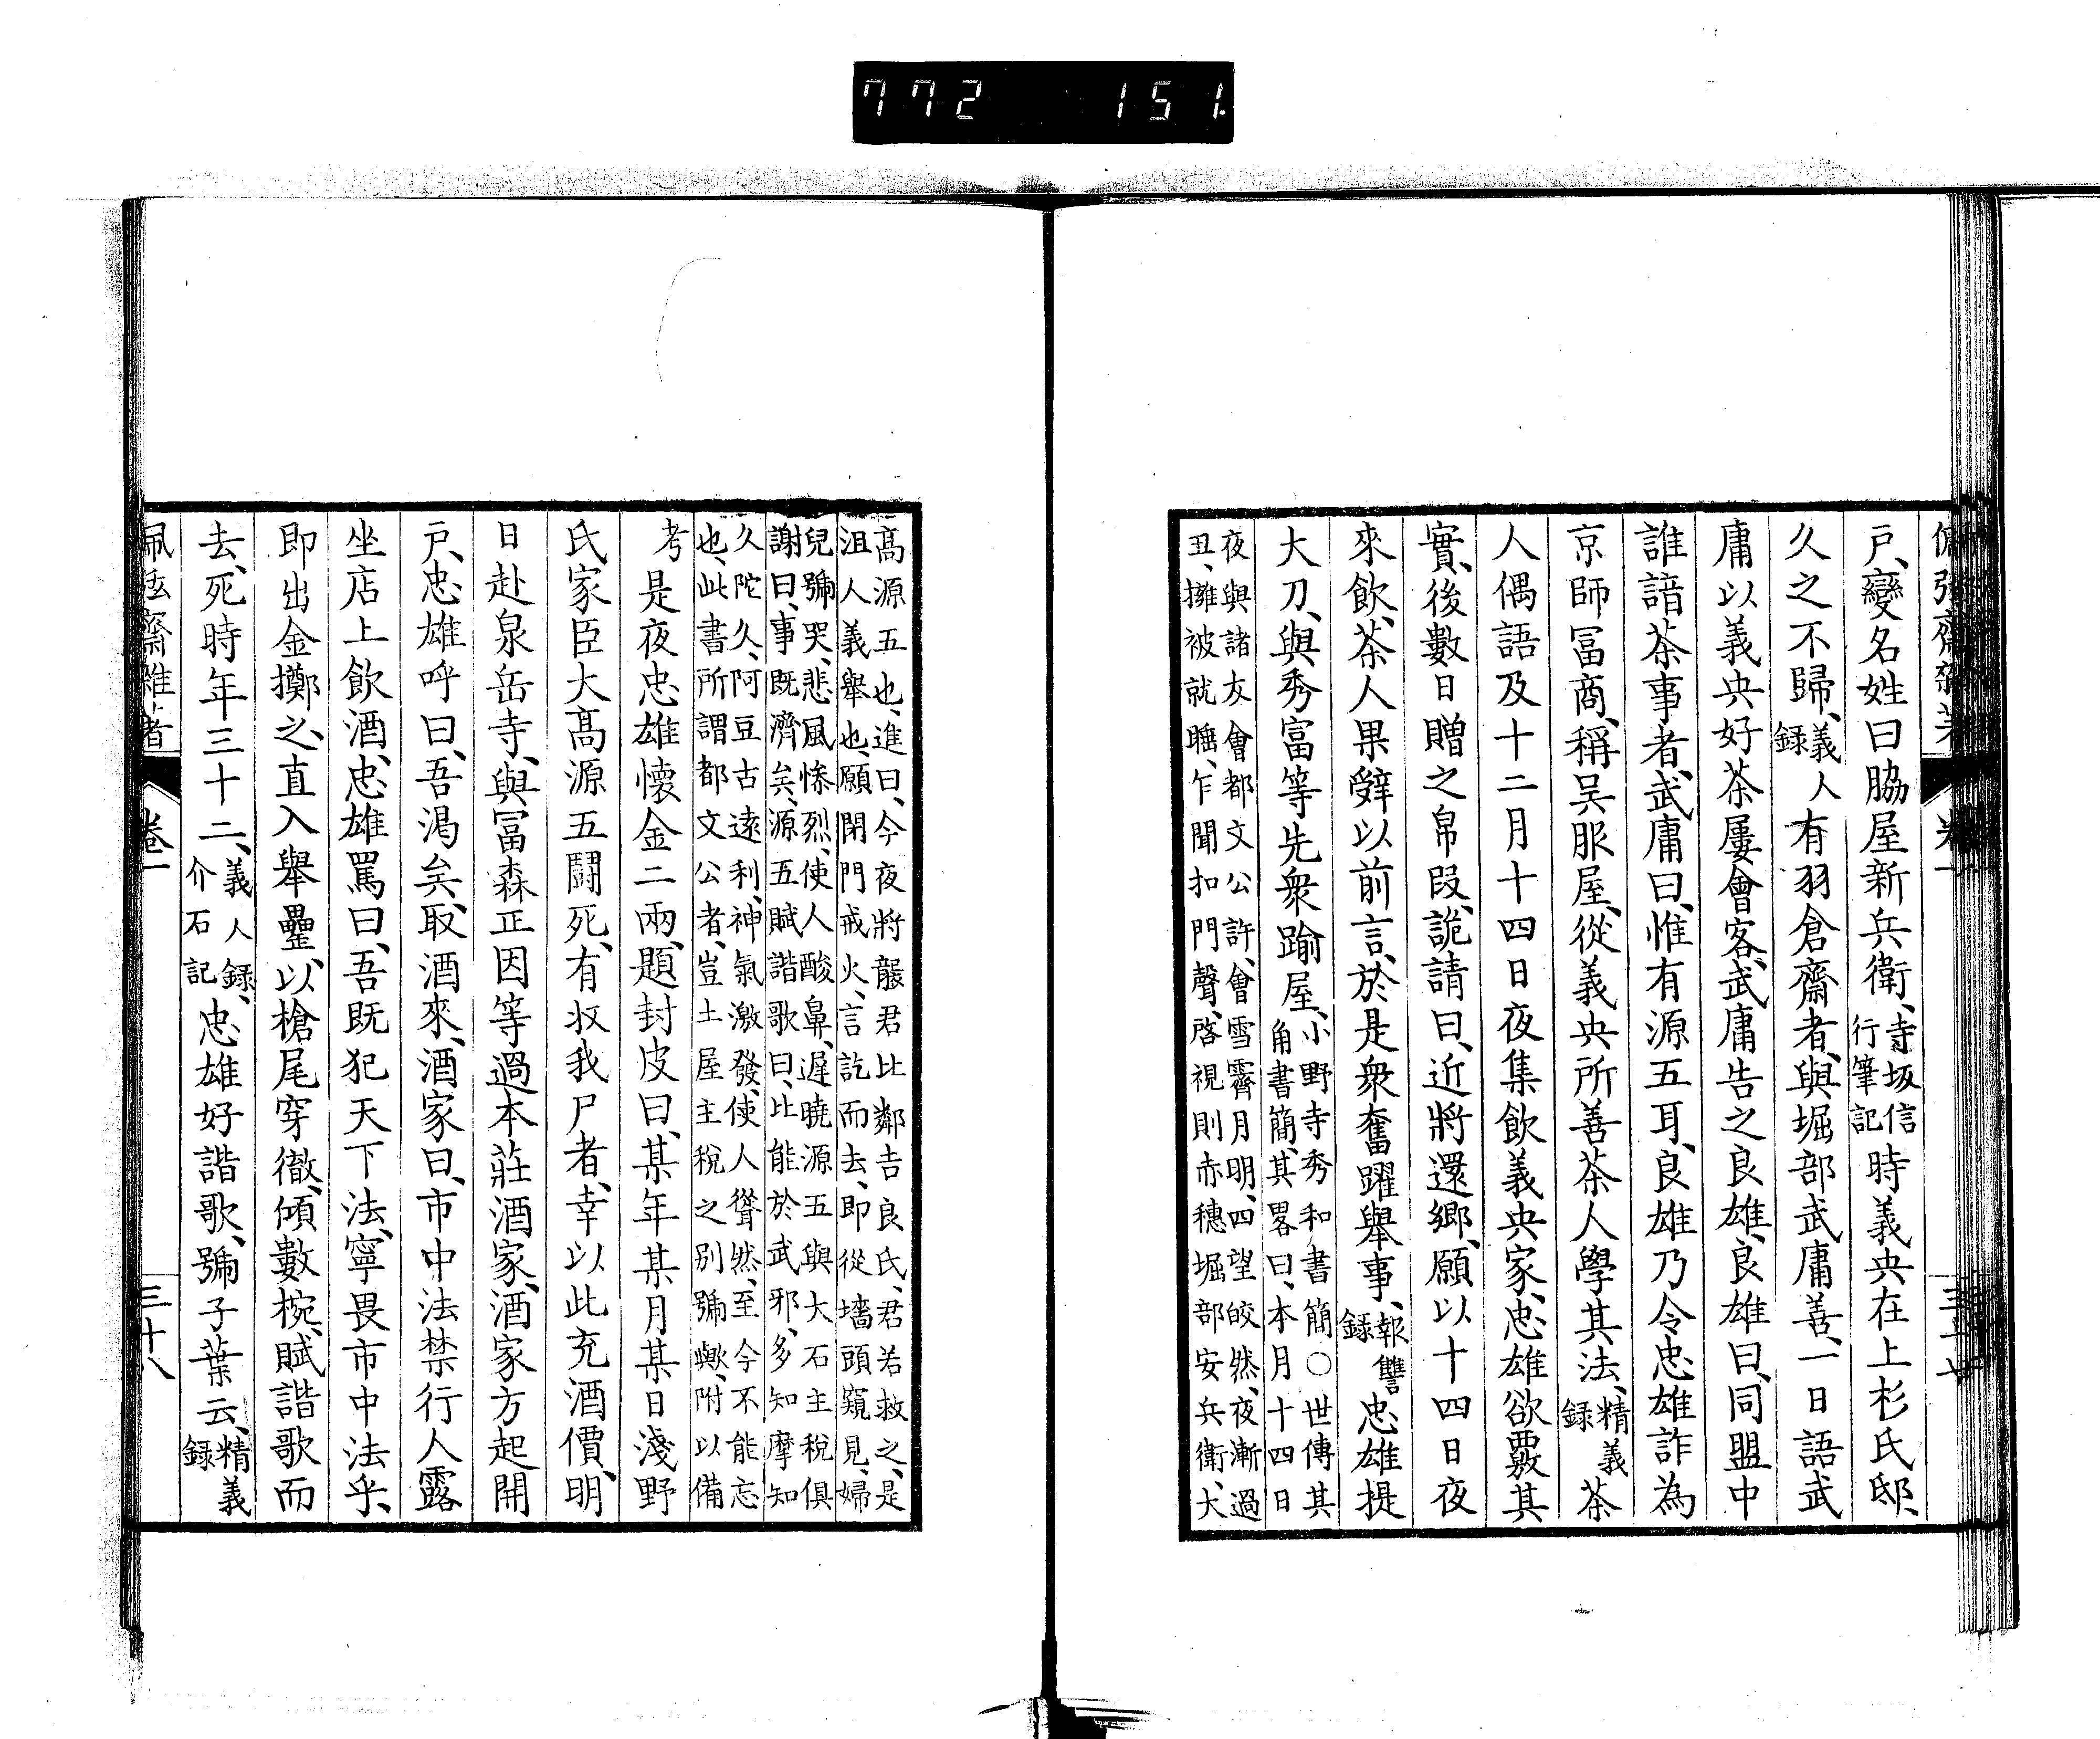 772 151
戶、變名姓曰脇屋新兵衛、寺坂信行筆記時義央在上杉氏邸、
久之不歸、義人錄有羽倉齋者、與堀部武庸善、一日語武
庸以義央好茶屢會客、武庸告之良雄、良雄曰、同盟中
誰諳茶事者、武庸曰、惟有源五耳、良雄乃令忠雄詐為
京師冨商、稱吴服屋、從義央所善茶人學其法、精義錄茶
人偶語及十二月十四日夜集飲義央家、忠雄欲覈其
實、後數日贈之帛段、詭請曰、近將還鄉、願以十四日夜
來飲、茶人果辭以前言、於是衆奮躍舉事、報讐錄忠雄提
大刀、與秀富等先衆踰屋、小野寺秀和書簡○世傳其角書簡、其畧曰、本月十四日
夜與諸友會都文公許、會雪霽月明、四望皎然、夜漸過
丑、擁被就睡、乍聞扣門聲、啓視則赤穗堀部安兵衛、大
高源五也、進曰、今夜將龍君比鄰吉良氏、君若救之、是
沮人義舉也、願閉門戒火、言訖而去、即從墻頭窺見、婦
兒號哭、悲風慘烈、使人酸鼻、遲曉源五與大石主稅俱
謝曰、事既濟矣、源五賦諧歌曰、比能於武邪、多知摩知
久陀久、阿豆古遠利、神氣激發、使人聳然、至今不能忘
也、此書所謂都文公者、豈土屋主稅之別號歟、附以備
考是夜忠雄懷金二兩、題封皮曰、某年某月某日淺野
氏家臣大高源五鬪死、有收我尸者、幸以此充酒價、明
日赴泉岳寺、與冨森正因等過本莊酒家、酒家方起開
戶、忠雄呼曰、吾渴矣、取酒來、酒家曰、市中法禁行人露
坐店上飲酒、忠雄罵曰、吾既犯天下法、寧畏市中法乎、
即出金擲之、直入舉罍、以槍尾穿徹、傾數椀、賦諧歌而
去、死時年三十二、義人錄、介石記忠雄好諧歌、號子葉云、精義錄
佩弦齋雜著 卷一 三十八